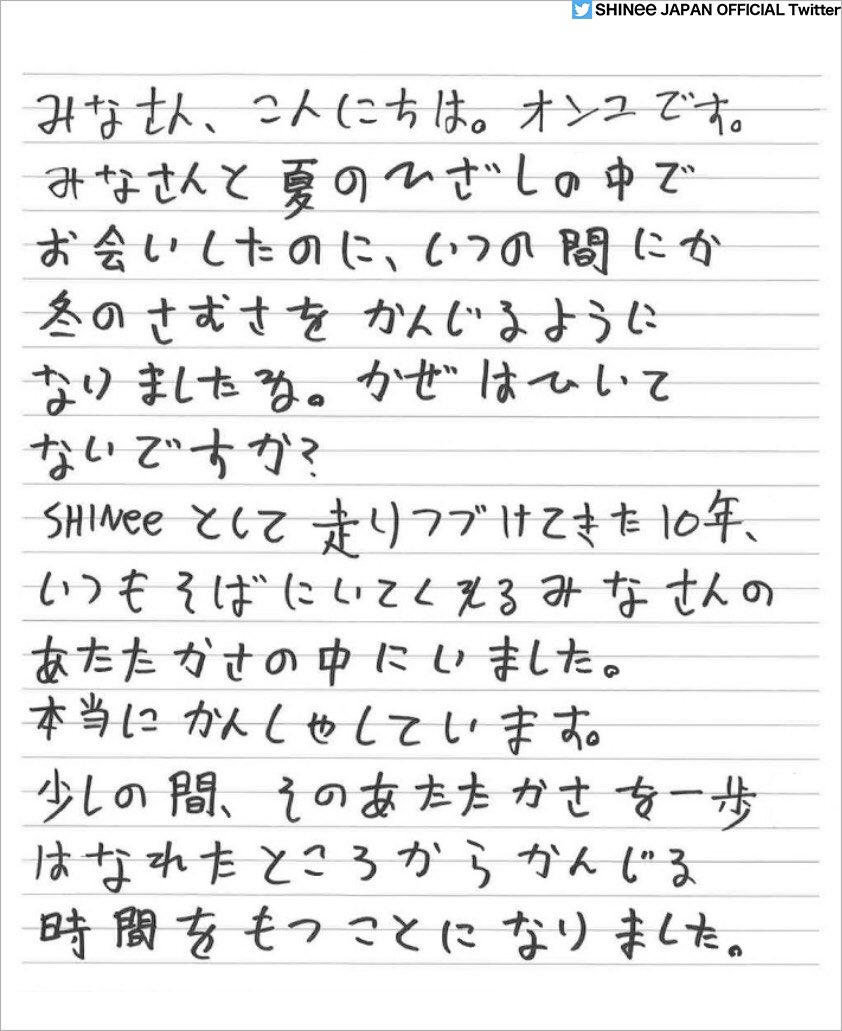 SHINee JAPAN OFFICIAL Twitter
みなさん、こんにちは。オンユです。
みなさんと夏のひざしの中で
お会いしたのに、いつの間にか
冬のさむさをかんじるように
なりましたね。かぜはひいて
ないですか?
SHINeeとして走りつづけてきた10年、
いつもそばにいてくれるみなさんの
あたたかさの中にいました。
本当にかんしゃしています。
少しの間、そのあたたかさを一歩
はなれたところからかんじる
時間をもつことになりました。